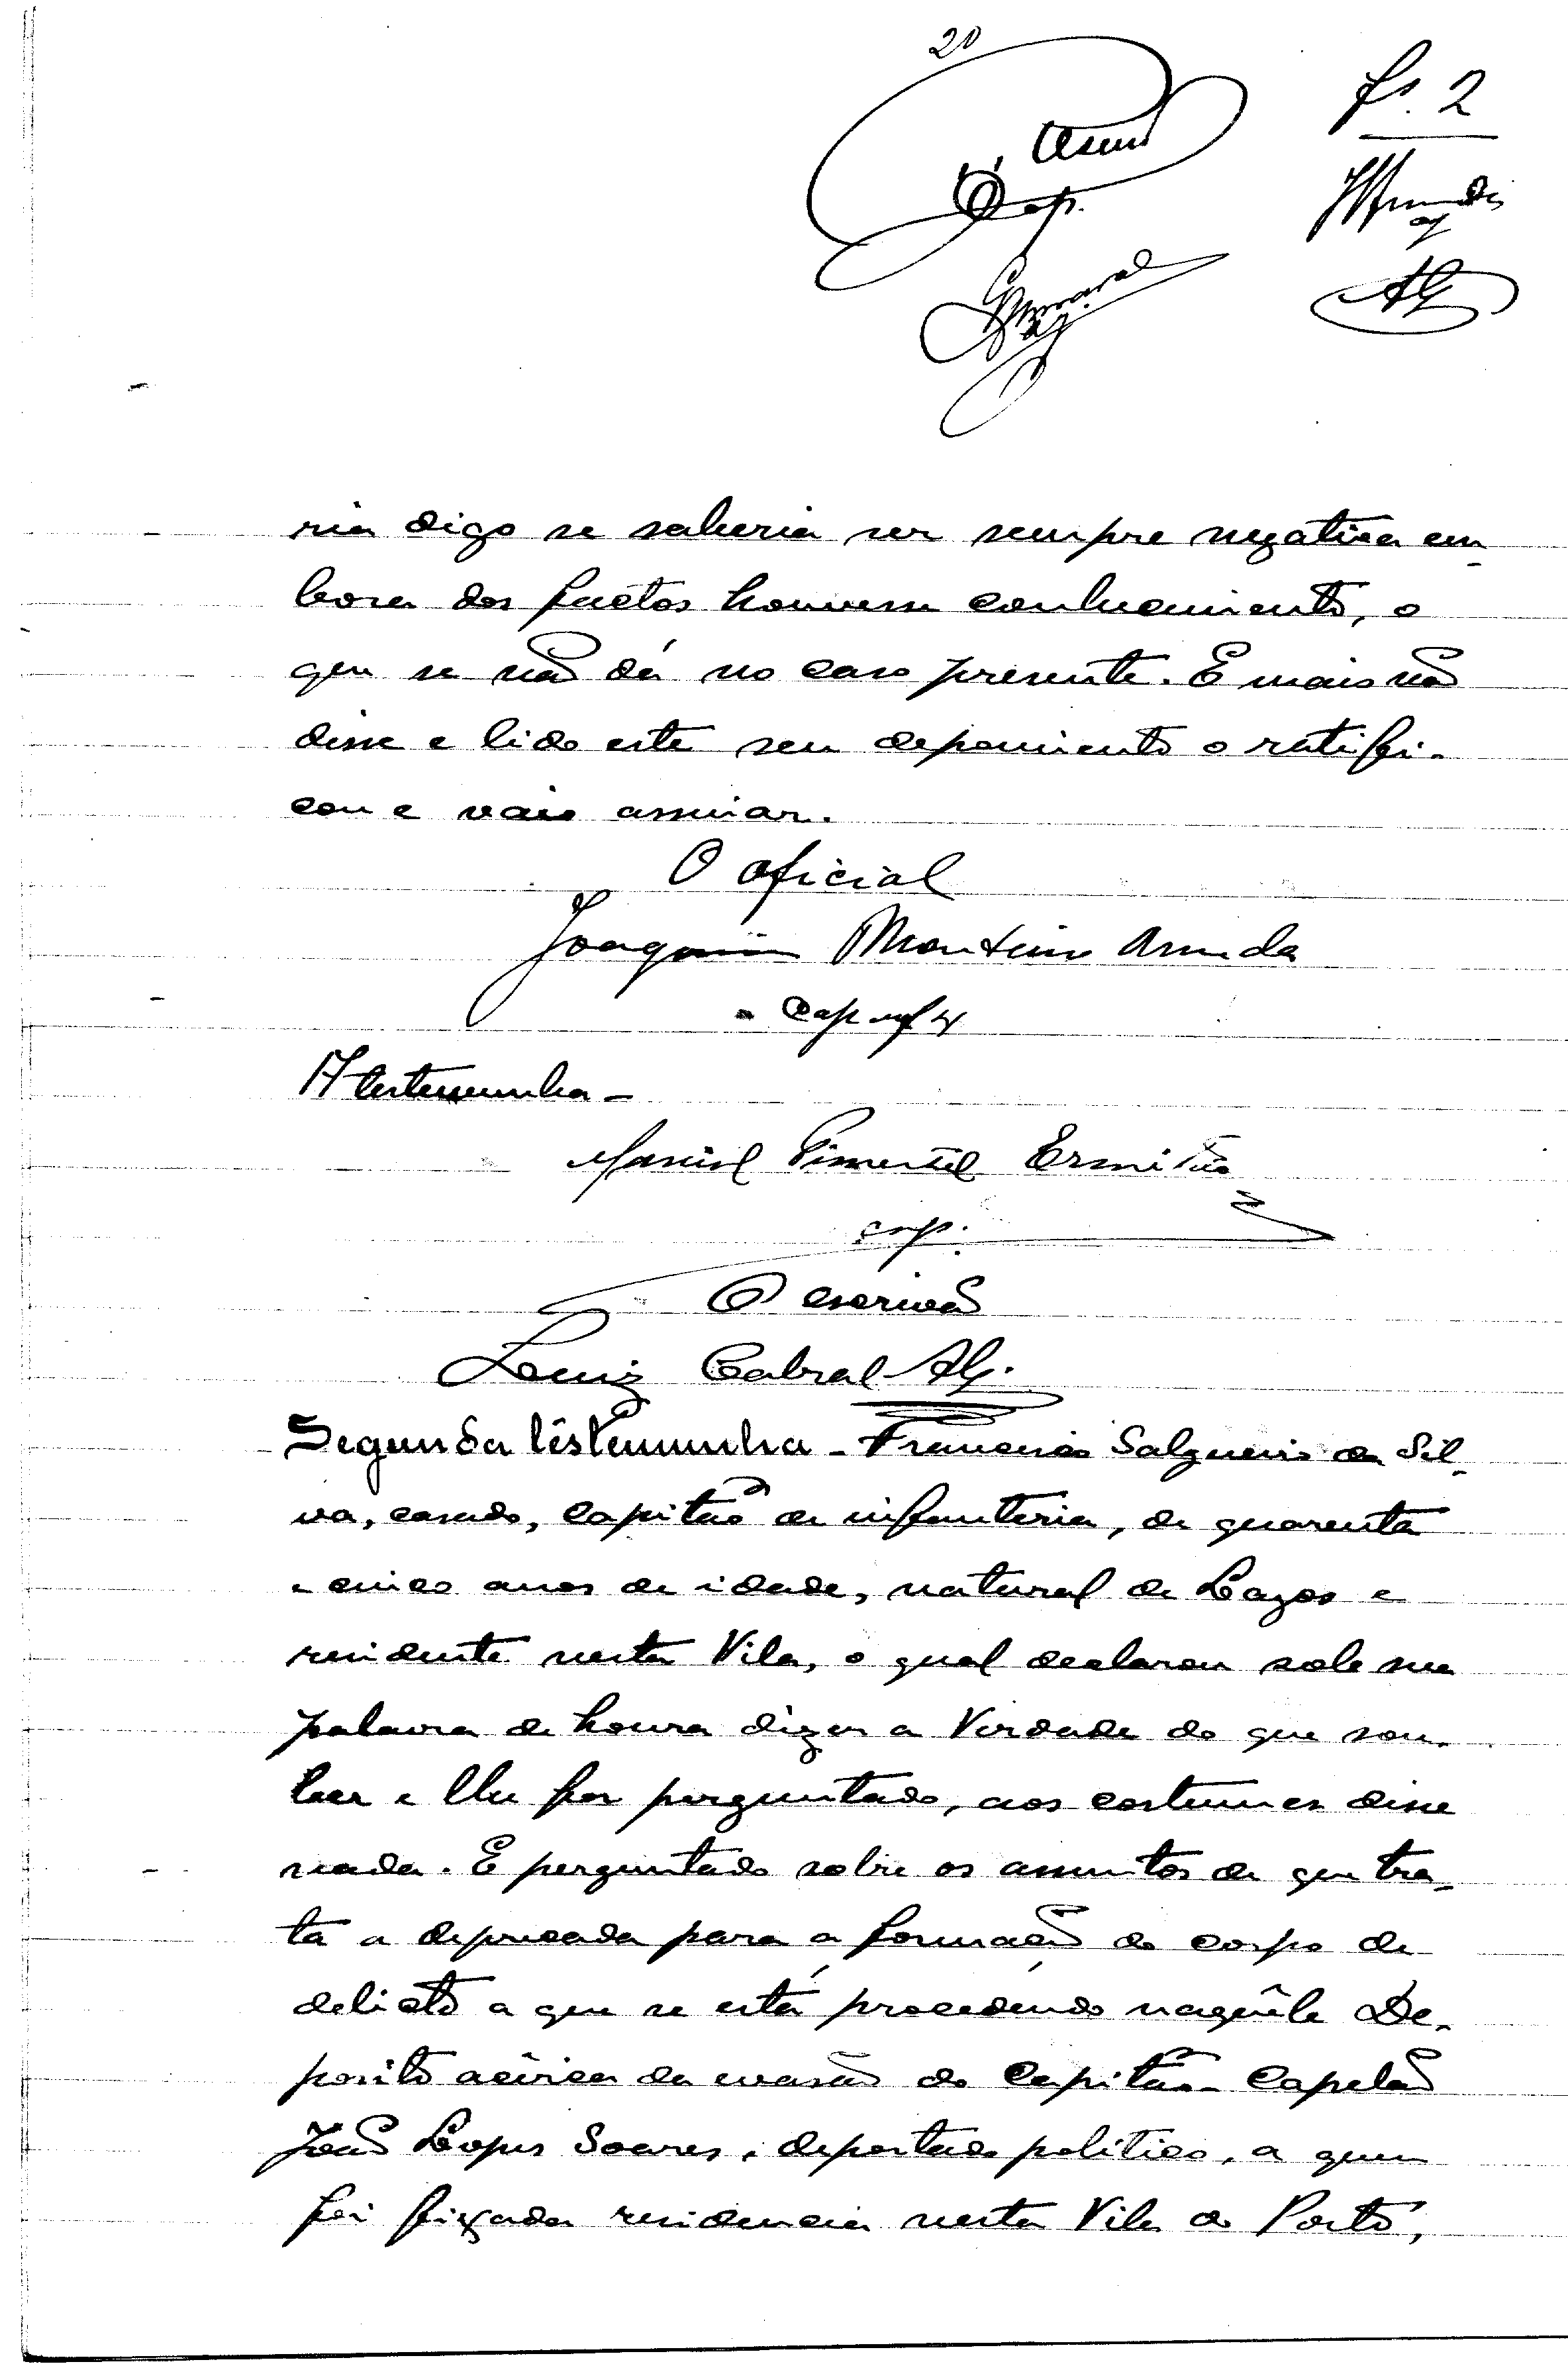 20
fs. 2
Cap.
ria digo se saberia ser sempre negativa em-
bora dos factos houvesse conhecimento, o
que se não dá no caso presente. E mais não
disse e lido este seu depoimento o ratifi-
cou e vai assinar.
O oficial
Joaquim Monteiro Arruda
Cap inf
A testemunha -
Manuel Pimentel Ermitão
cap.
O escrivão
Luiz Cabral Alf.
Segunda testemunha - Francisco Salgueiro da Sil-
va, casado, capitão de infanteria, de quarenta
e cinco anos de idade, natural de Lagos e
residente nesta Vila, o qual declarou sob sua
palavra de honra dizer a Verdade do que sou-
ber e lhe for perguntado, aos costumes disse
nada. E perguntado sobre os assuntos de que tra-
ta a deprecada para a formação do corpo de
delicto a que se está procedendo naquêle De-
posito acêrca da evasão do Capitão Capelão
João Lopes Soares, deportado politico, a quem
foi fixada residencia nesta Vila do Porto,